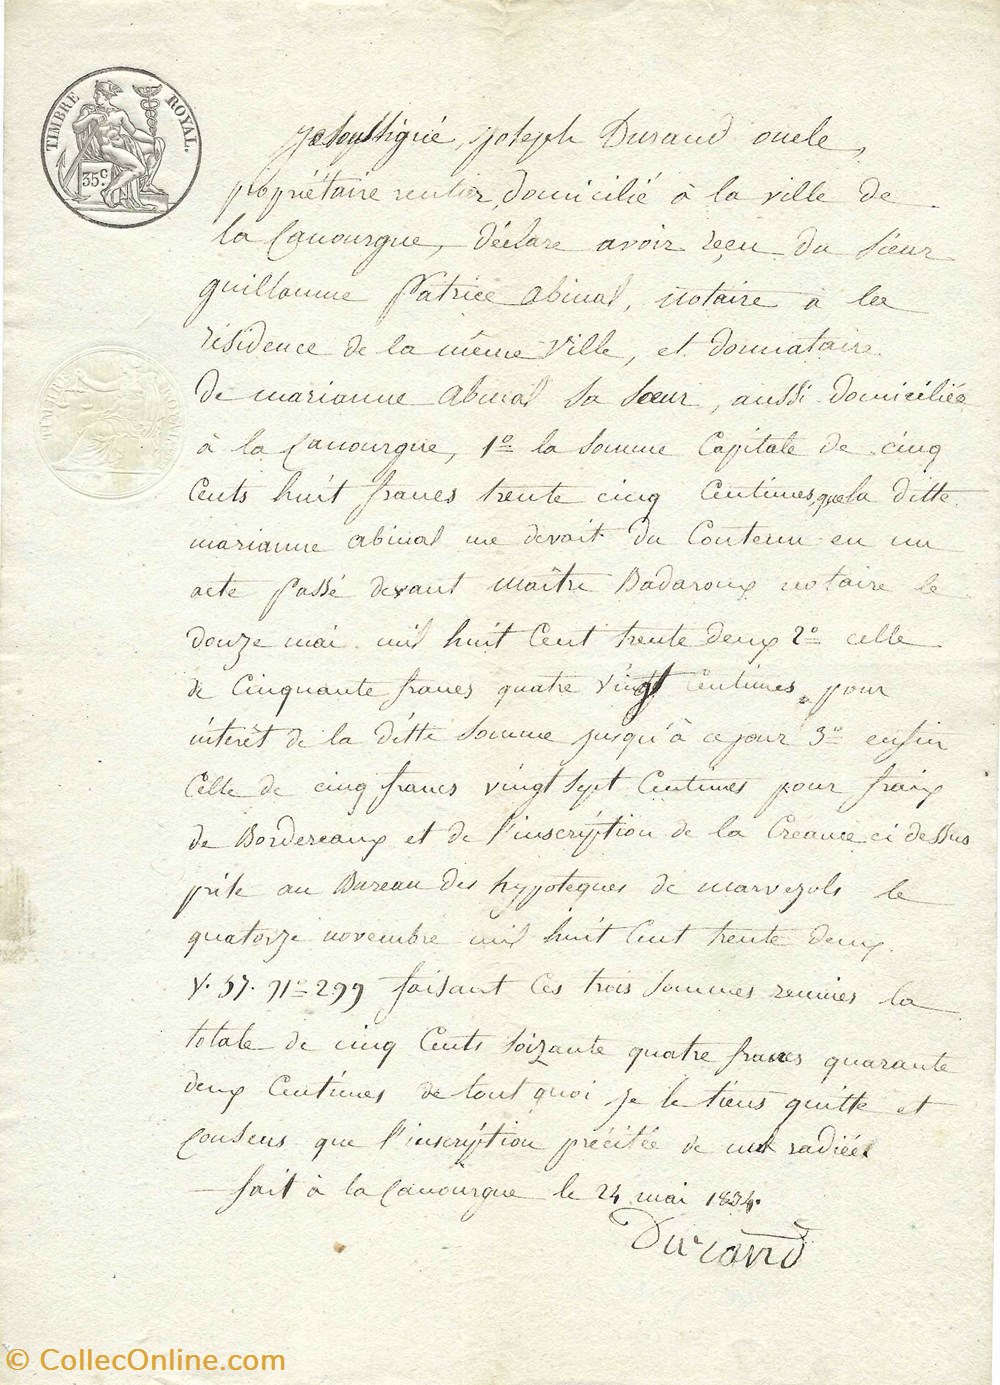 TIMBRE ROYAL.
35 C
Je soussigné, joseph Durand oncle,
propriétaire rentier, domicilié à la ville de
la Canourgue, déclare avoir reçu du sieur
guillaume Patrice abinal, notaire à la
résidence de la même ville, et donnataire
de marianne abinal sa sœur, aussi domiciliée
à la Canourgue, 1º la somme Capitale de cinq
Cents huit francs trente cinq Centimes, que la ditte
marianne abinal me devait du Contenu en un
acte passé devant maître Badaroux notaire le
douze mai mil huit Cent trente deux 2º celle
de Cinquante francs quatre vingt Centimes pour
intérêt de la ditte somme jusqu'à ce jour 3º enfin
Celle de cinq francs vingt sept Centimes pour fraix
de Bordereaux et de l'inscription de la Créance ci dessus
prise au Bureau des hypoteques de marvejols le
quatorze novembre mil huit Cent trente deux
V. 57. nº 299 faisant Ces trois sommes reunies la
totale de cinq Cents soizante quatre francs quarante
deux Centimes de tout quoi je le tiens quitte et
Consens que l'inscription précitée de radiée
fait à la Canourgue le 24 mai 1834.
Durand
© CollecOnline.com